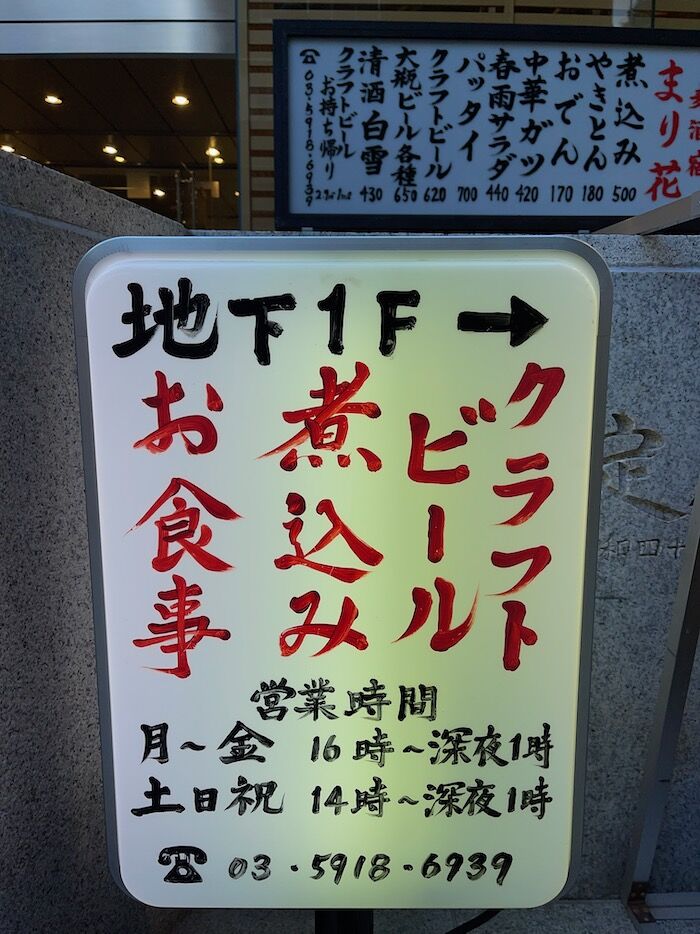 まり花
煮込み 500
やきとん 180
おでん 170
中華ガツ 420
春雨サラダ 440
パッタイ 700
クラフトビール 620
大瓶ビール各種 650
清酒白雪 430
クラフトビール
お持ち帰り
☎03-5918-6939
地下1F →
クラフト
ビール
煮込み
お食事
営業時間
月~金 16時~深夜1時
土日祝 14時~深夜1時
☎ 03・5918・6939
定